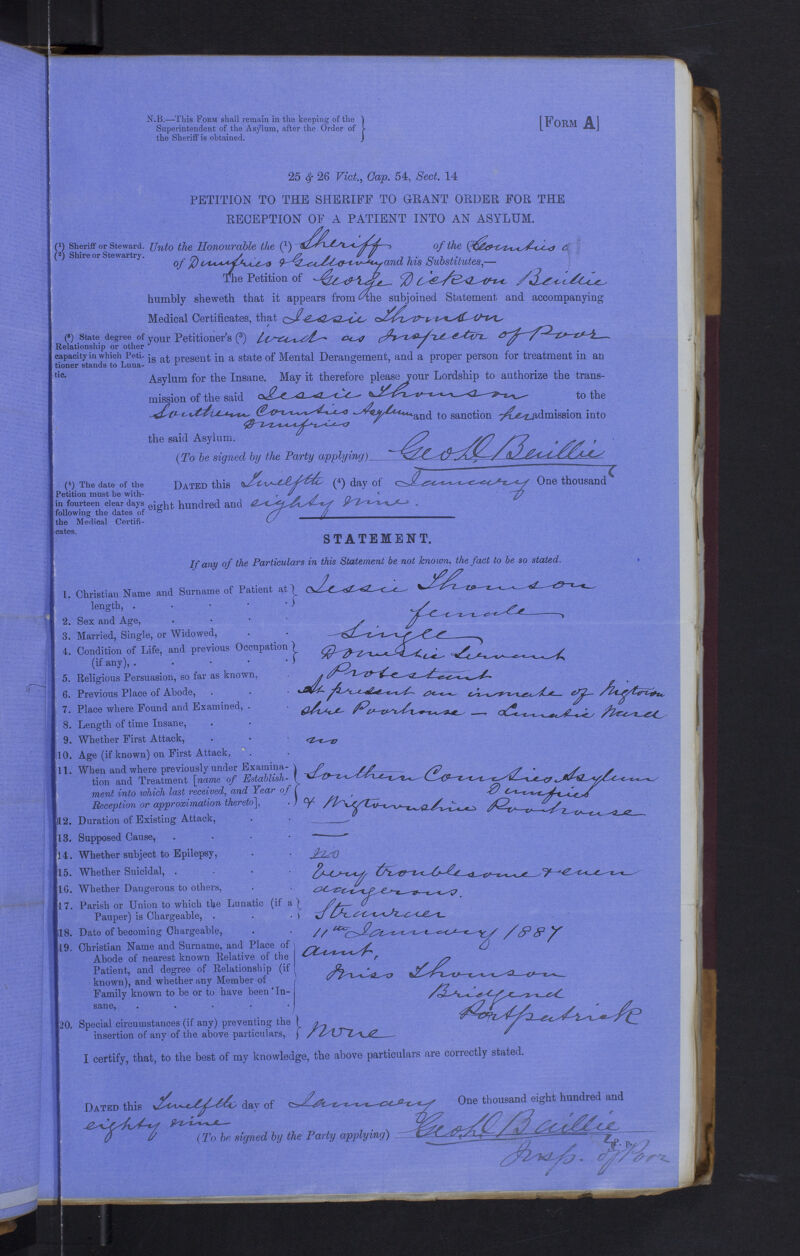 N.B.—This Form shall remain in the keeping of the
Superintendent of the Asylum, after the Order of
the Sheriff is obtained.
[Form A]
25 & 26 Vict., Cap. 54, Sect. 14
PETITION TO THE SHERIFF TO GRANT ORDER FOR THE
RECEPTION OF A PATIENT INTO AN ASYLUM.
(1) Sheriff or Steward.
(2) Shire or Stewartry.
Unto the Honourable the (1) Sheriff of the Counties
of Dumfries & Galloway and his Substitutes,—
The Petition of George Dickson Baillie
humbly sheweth that it appears from the subjoined Statement and accompanying
Medical Certificates, that Jessie Thomson
(3) State degree of
Relationship or other
capacity in which Peti-
tioner stands to Luna-
tic.
your Petitioner's (3) Ward as Inspector of Poor
is at present in a state of Mental Derangement, and a proper person for treatment in an
Asylum for the Insane. May it therefore please your Lordship to authorize the trans-
mission of the said Jessie Thomson to the
Southern Counties Asylum and to sanction her admission into
Dumfries
the said Asylum.
(To be signed by the Party applying) Geo D. Baillie
(4) The date of the
Petition must be with-
in fourteen clear days
following the dates of
the Medical Certifi-
cates.
Dated this Twelfth (4) day of January One thousand
eight hundred and eighty nine.
STATEMENT.
If any of the Particulars in this Statement be not known, the fact to be so stated.
1. Christian Name and Surname of Patient at
length, . Jessie Thomson
2. Sex and Age, female
3. Married, Single, or Widowed, Single
4. Condition of Life, and previous Occupation
(if any), . Domestic Servant
5. Religious Persuasion, so far as known, Protestant
6. Previous Place of Abode, . At present an inmate of Wigtown
7. Place where Found and Examined, . shire Poorhouse — Lunatic Ward
8. Length of time Insane,
9. Whether First Attack, no
10. Age (if known) on First Attack,
11. When and where previously under Examina-
tion and Treatment [name of Establish-
ment into which last received, and Year of
Reception or approximation thereto],
Southern Counties Asylum
Dumfries
& Wigtownshire Poorhouse
12. Duration of Existing Attack, —
13. Supposed Cause, —
14. Whether subject to Epilepsy, no
15. Whether Suicidal, . Very troublesome & even
16. Whether Dangerous to others, dangerous.
17. Parish or Union to which the Lunatic (if a
Pauper) is Chargeable, . Stranraer
18. Date of becoming Chargeable, 11th January 1887
19. Christian Name and Surname, and Place of
Abode of nearest known Relative of the
Patient, and degree of Relationship (if
known), and whether any Member of
Family known to be or to have been In-
sane,
Aunt,
Miss Thomson
Bridgend
Portpatrick
20. Special circumstances (if any) preventing the
insertion of any of the above particulars, None
I certify, that, to the best of my knowledge, the above particulars are correctly stated.
Dated this Twelfth day of January One thousand eight hundred and
eighty nine
(To be signed by the Party applying) Geo D. Baillie
Insp. of Poor